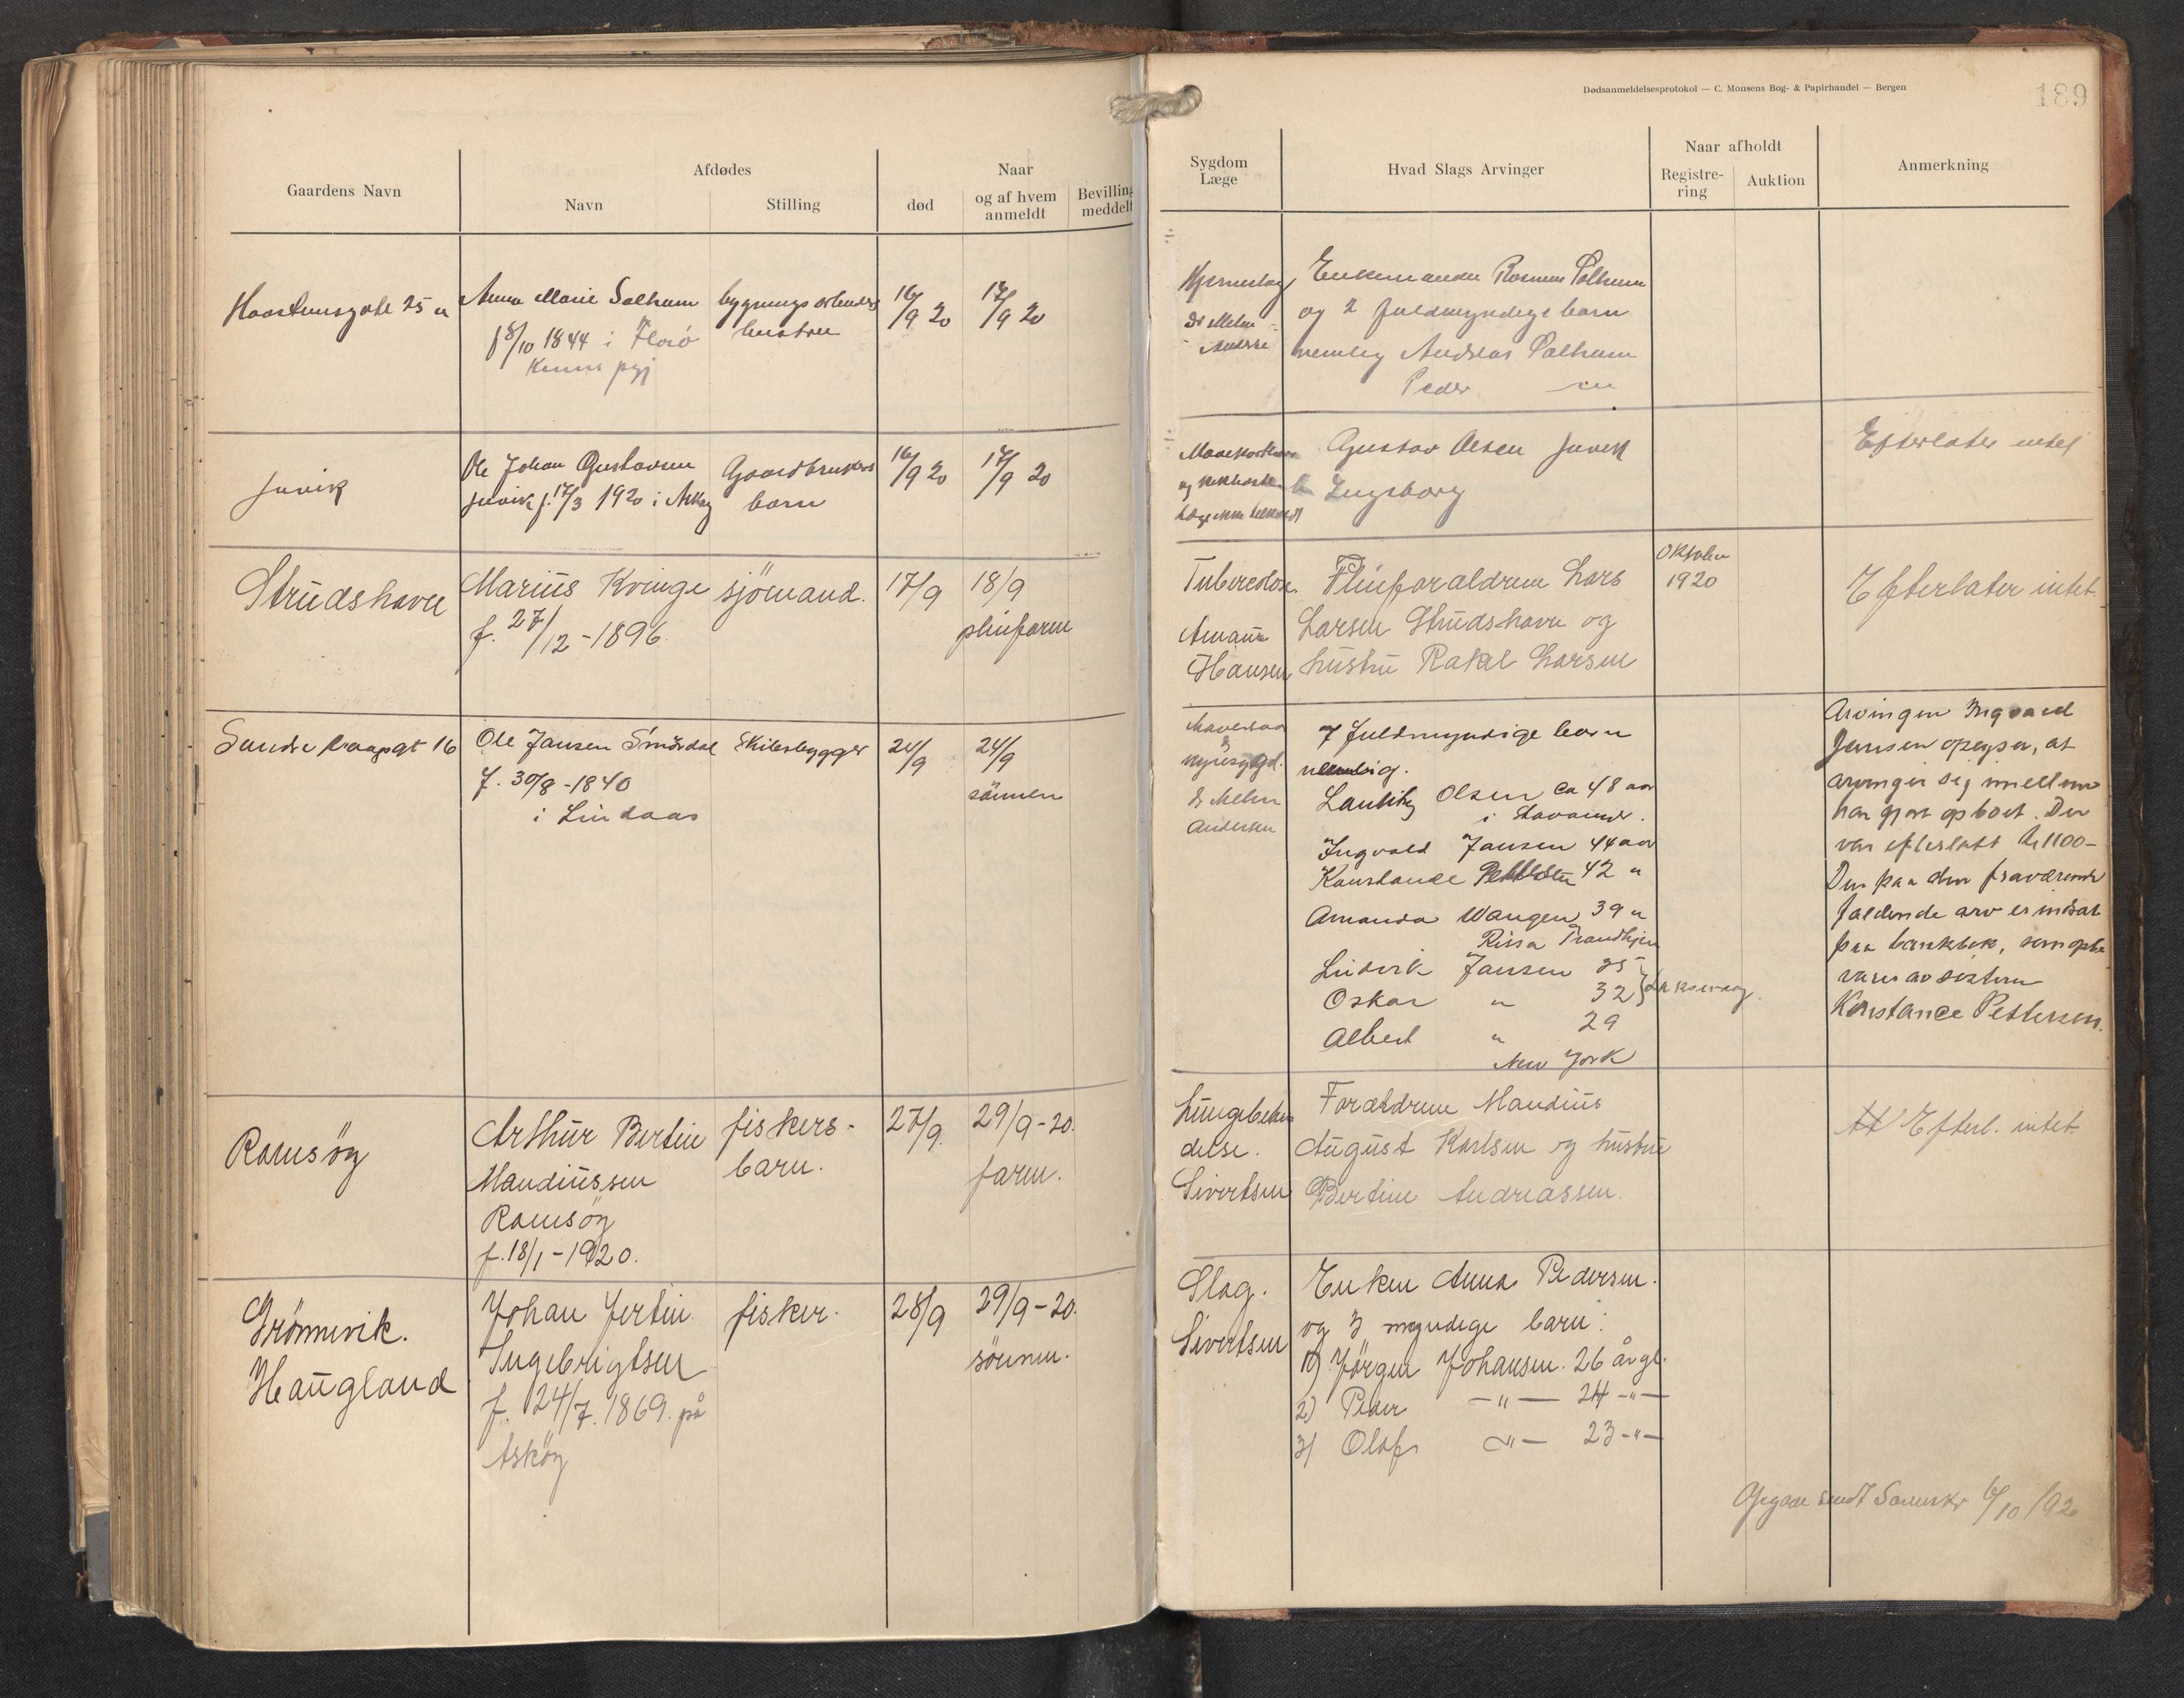 Gaardens Navn
Afdødes
Navn
Stilling
Naar
død
og af hvem
anmeldt
Bevilling
meddelt
Anna Marie Solheim
f 8/10 1844 i Florø
16/9 20
17/9 20
Juvik
Ole Johan Gustavsen
Juvik f. 17/3 1920 i Askøy
Gaardbrukers
barn
16/9 20
17/9 20
Strudshavn
Marius Kvinge
f. 27/12-1896.
sjömand.
17/9
18/9
Ole Jansen Smørdal
f. 30/8-1840
i Lindaas
Skibsbygger
24/9
24/9
sönnen
Ramsöy
Arthur Bertin
Mandiussen
Ramsöy
f. 18/1-1920.
fiskers-
barn.
27/9.
29/9-20.
faren.
Grönnevik.
Haugland
Johan Jertin
Ingebrigtsen
f. 24/7. 1869. på
Asköy
fisker.
28/9
29/9-20.
sönnen.
Dødsanmeldelsesprotokol — C. Monsens Bog- & Papirhandel — Bergen
189
Sygdom
Læge
Hvad Slags Arvinger
Naar afholdt
Registre-
ring
Auktion
Anmerkning
Hjerneslag
Enkemanden Rasmus Solheim
og 2 fuldmyndige barn
nemlig Andreas Solheim
Peder
Gustav Olsen Juvik
Ingeborg
Efterlater intet
Tuberculose.
Amanu
Hansen
Pleieforældrene Lars
Larsen Strudshavn og
hustru Rakel Larsen
Oktober
1920
Efterlater intet.
nyresygd.
Dr Melm
Andersen
7 fuldmyndige barn
nemlig.
Olsen ca 48 aar
i Stavanger.
Ingvald Jansen 44 aar
Konstance Pettersen 42 "
Amanda Wangen 39 "
Rissa Trondhjem
Ludvik Jansen 35
Oskar " 32 } Laksevaag
Albert " 29
New York
Arvingen Ingvald
Jansen opgiver, at
arvinger sig imellem
har gjort op boet. Der
var efterlatt kr 1100-
Den paa den fraværende
faldende arv er indsat
paa bankbok, som opbe
vares av søsteren
Konstance Pettersen.
Lungebeten
delse.
Sivertsen
Forældrene Mandius
August Karlsen og hustru
Bertine Andreassen.
Efterl. intet
Slag.
Sivertsen
Enken Anna Pedersen.
og 3 myndige barn:
1) Jörgen Johansen. 26 år gl.
2) Peder —"— 24 —"—
3) Olaf —"— 23 —"—
Opgave sendt Sorenskr 6/10/920